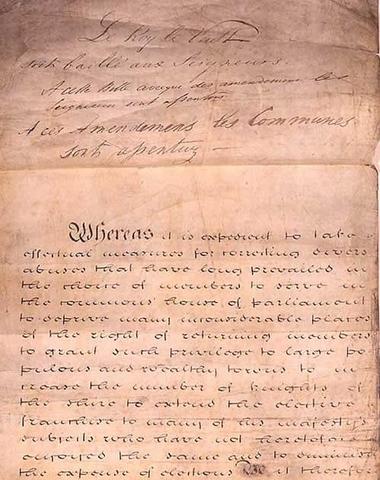 Le Roy le Veult
soit baillé aux Seigneurs.
A cette Bille avecque des amendemens les
Seigneurs sont assentus.
A ces Amendemens les Communes
sont assentuz —
Whereas it is expedient to take
effectual measures for correcting divers
abuses that have long prevailed in
the choice of members to serve in
the commons house of parliament
to deprive many inconsiderable places
of the right of returning members
to grant such privilege to large po
pulous and wealthy towns to in
crease the number of knights of
the shire to extend the elective
franchise to many of his majesty's
subjects who have not heretofore
enjoyed the same and to diminish
the expense of elections Be it therefor